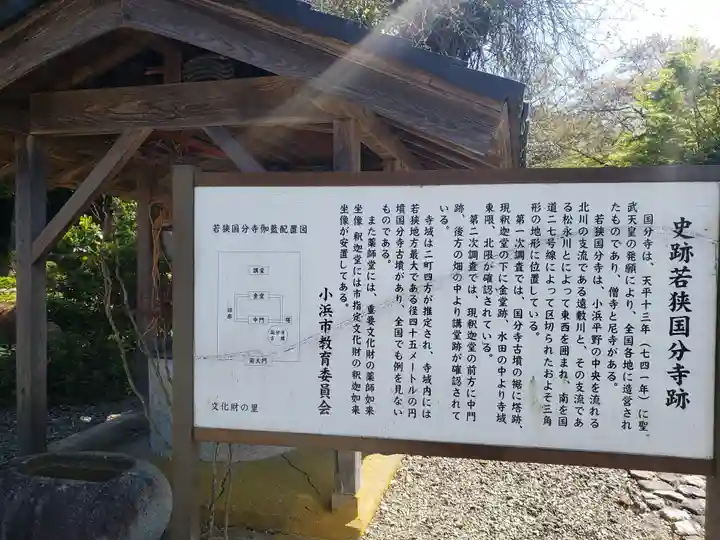 史跡若狭国分寺跡
国分寺は、天平十三年(七四一年)に聖
武天皇の発願により、全国各地に造営され
たものであり、僧寺と尼寺がある。
若狭国分寺は、小浜平野の中央を流れる
北川の支流である遠敷川と、その支流であ
る松永川とによって東西を囲まれ、南を国
道二七号線によって区切られたおよそ三角
形の地形に位置している。
第一次調査では、国分寺古墳の裾に塔跡、
現釈迦堂の下に金堂跡、水田の中より寺域
東限、北限が確認されている。
第二次調査では、現釈迦堂の前方に中門
跡、後方の畑の中より講堂跡が確認されて
いる。
寺域は二町四方が推定され、寺域内には
若狭地方最大である径四十五メートルの円
墳国分寺古墳があり、全国でも例を見ない
ものである。
また薬師堂には、重要文化財の薬師如来
坐像、釈迦堂には市指定文化財の釈迦如来
坐像が安置してある。
小浜市教育委員会
若狭国分寺伽藍配置図
講堂
金堂
回廊
中門
塔
国分寺
古墳
南大門
文化財の里